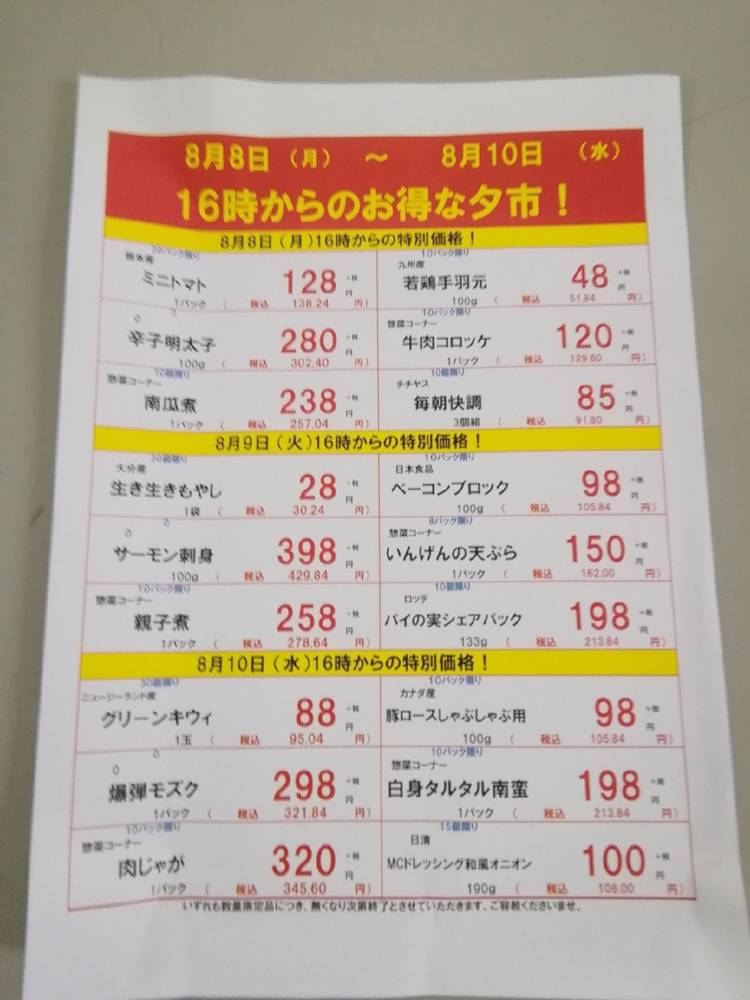 8月8日（月）　～　8月10日　（水）
16時からのお得な夕市！
8月8日（月）16時からの特別価格！
20パック限り
熊本産
ミニトマト　128　+税　円
1パック　（　税込　138.24　円）
10パック限り
九州産
若鶏手羽元　48　+税　円
100g　（　税込　51.84　円）
0　0
辛子明太子　280　+税　円
100g　（　税込　302.40　円）
10パック限り
惣菜コーナー
牛肉コロッケ　120　+税　円
1パック　（　税込　129.60　円）
10個限り
惣菜コーナー
南瓜煮　238　+税　円
1パック　（　税込　257.04　円）
10個限り
チチヤス
毎朝快調　85　+税　円
3個組　（　税込　91.80　円）
8月9日（火）16時からの特別価格！
30袋限り
大分産
生き生きもやし　28　+税　円
1袋　（　税込　30.24　円）
10パック限り
日本食品
ベーコンブロック　98　+税　円
100g　（　税込　105.84　円）
0　0
サーモン刺身　398　+税　円
100g　（　税込　429.84　円）
8パック限り
惣菜コーナー
いんげんの天ぷら　150　+税　円
1パック　（　税込　162.00　円）
10パック限り
惣菜コーナー
親子煮　258　+税　円
1パック　（　税込　278.64　円）
10個限り
ロッテ
パイの実シェアパック　198　+税　円
133g　（　税込　213.84　円）
8月10日（水）16時からの特別価格！
30個限り
ニュージーランド産
グリーンキウィ　88　+税　円
1玉　（　税込　95.04　円）
10パック限り
カナダ産
豚ロースしゃぶしゃぶ用　98　+税　円
100g　（　税込　105.84　円）
0　0
爆弾モズク　298　+税　円
1パック　（　税込　321.84　円）
10パック限り
惣菜コーナー
白身タルタル南蛮　198　+税　円
1パック　（　税込　213.84　円）
10パック限り
惣菜コーナー
肉じゃが　320　+税　円
1パック　（　税込　345.60　円）
15個限り
日清
MCドレッシング和風オニオン　100　+税　円
190g　（　税込　108.00　円）
いずれも数量限定品につき、無くなり次第終了とさせていただきます、ご容赦くださいませ。